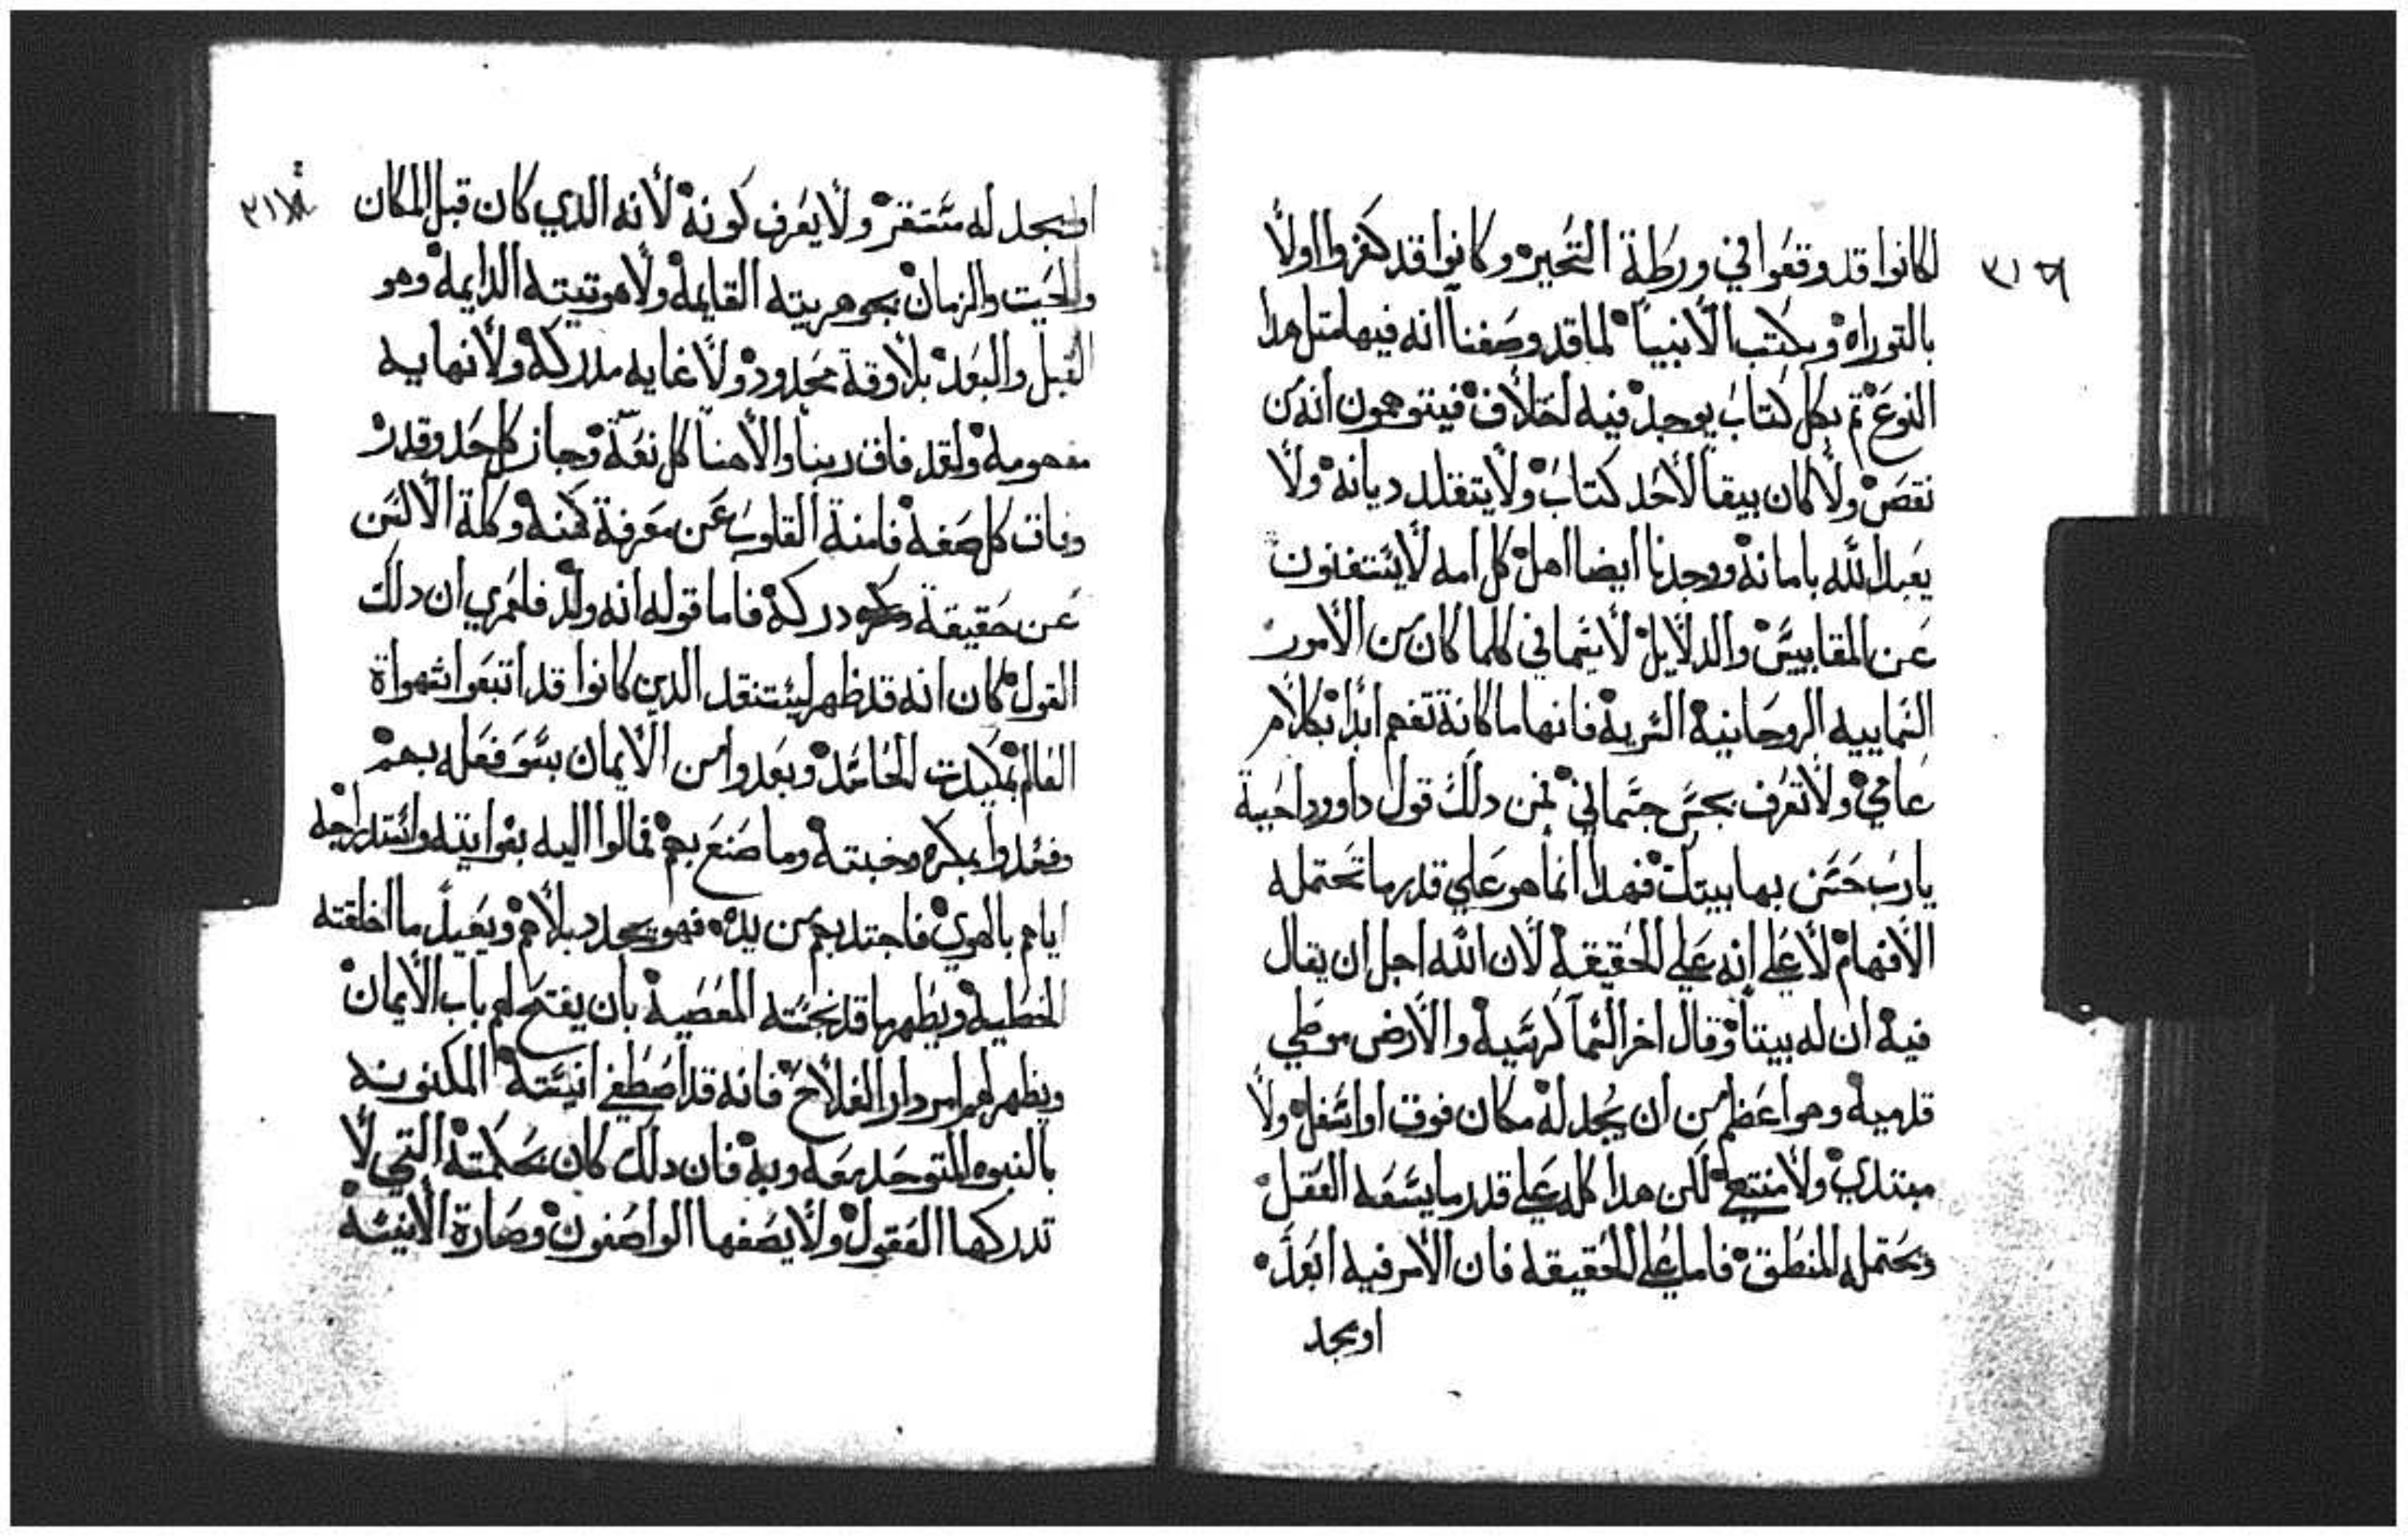 لكانوا قد وقعوا في ورطة التحير وكانوا قد كفروا اولا
بالتوراه وبكتب الانبيا لما قد وصفنا انه فيها مثل هدا
النوع تم بكل كتاب يوجد فيه اختلاف فيتوهمون انه من
نقص ولا كان يبقا لاحد كتاب ولا يتقلد ديانه ولا
يعبد الله بامانه ووجدنا ايضا اهل كل امه لا يستغنون
عن المقاييس والدلايل لا سيما في كلما كان من الامور
السماييه الروحانيه السريه فانها ما كانة تفهم ابدا بكلام
عامي ولا تعرف بحس جسماني فمن دلك قول داوود احببة
يارب حسن بها بيتك فهدا انما هو علي قدر ما تحتمله
الافهام لا علي انه علي الحقيقه لان الله اجل ان يقال
فيه ان له بيتا وقال اخر السما كرسيه والارض موطي
قدميه وهو اعظم من ان يجد له مكان فوق او اسفل ولا
مبتدي ولا منتهي لكن هدا كله علي قدر ما يسعه العقل
ويحتمله المنطق فاما علي الحقيقه فان الامر فيه ابعد
او يجد
او يجد له مستقر ولا يعرف كونه لانه الدي كان قبل المكان
والحيت والزمان بجوهريته القايمه ولاهوتيته الدايمه وهو
القبل والبعد بلا وقة محدود ولا غايه مدركه ولا نهايه
مفهومه ولقد فاق ربنا والاهنا كل نعة وجاز كل حد وقدر
وفاق كل صفه فامنة القلوب عن معرفة كمنه وكلة الالسن
عن حقيقة دركه فاما قوله انه ولد فلعمري ان دلك
القول كان انه قد ظهر ليستنقد الدين كانوا قد اتبعوا شهواة
العالم بمكيدت الحاسد وبعدوا من الايمان بسو فعله بهم
وفسدوا بمكره وخبته وما صنع بهم فمالوا اليه بغوايته واستدراجه
اياهم بالهوي فاجتدبهم من يده فهو يجدد بلاهم ويعيد ما اخلقته
الخطيه ويطهر ما قد نجسته المعصيه بان يفتح لهم باب الايمان
ويظهر لهم امر دار الفلاح فانه قد اصطفي انيسته المكنونه
بالنبوه المتوحد معه وبه فان دلك كان بحكمته التي لا
تدركها العقول ولا يصفها الواصفون وصارة الانيسه